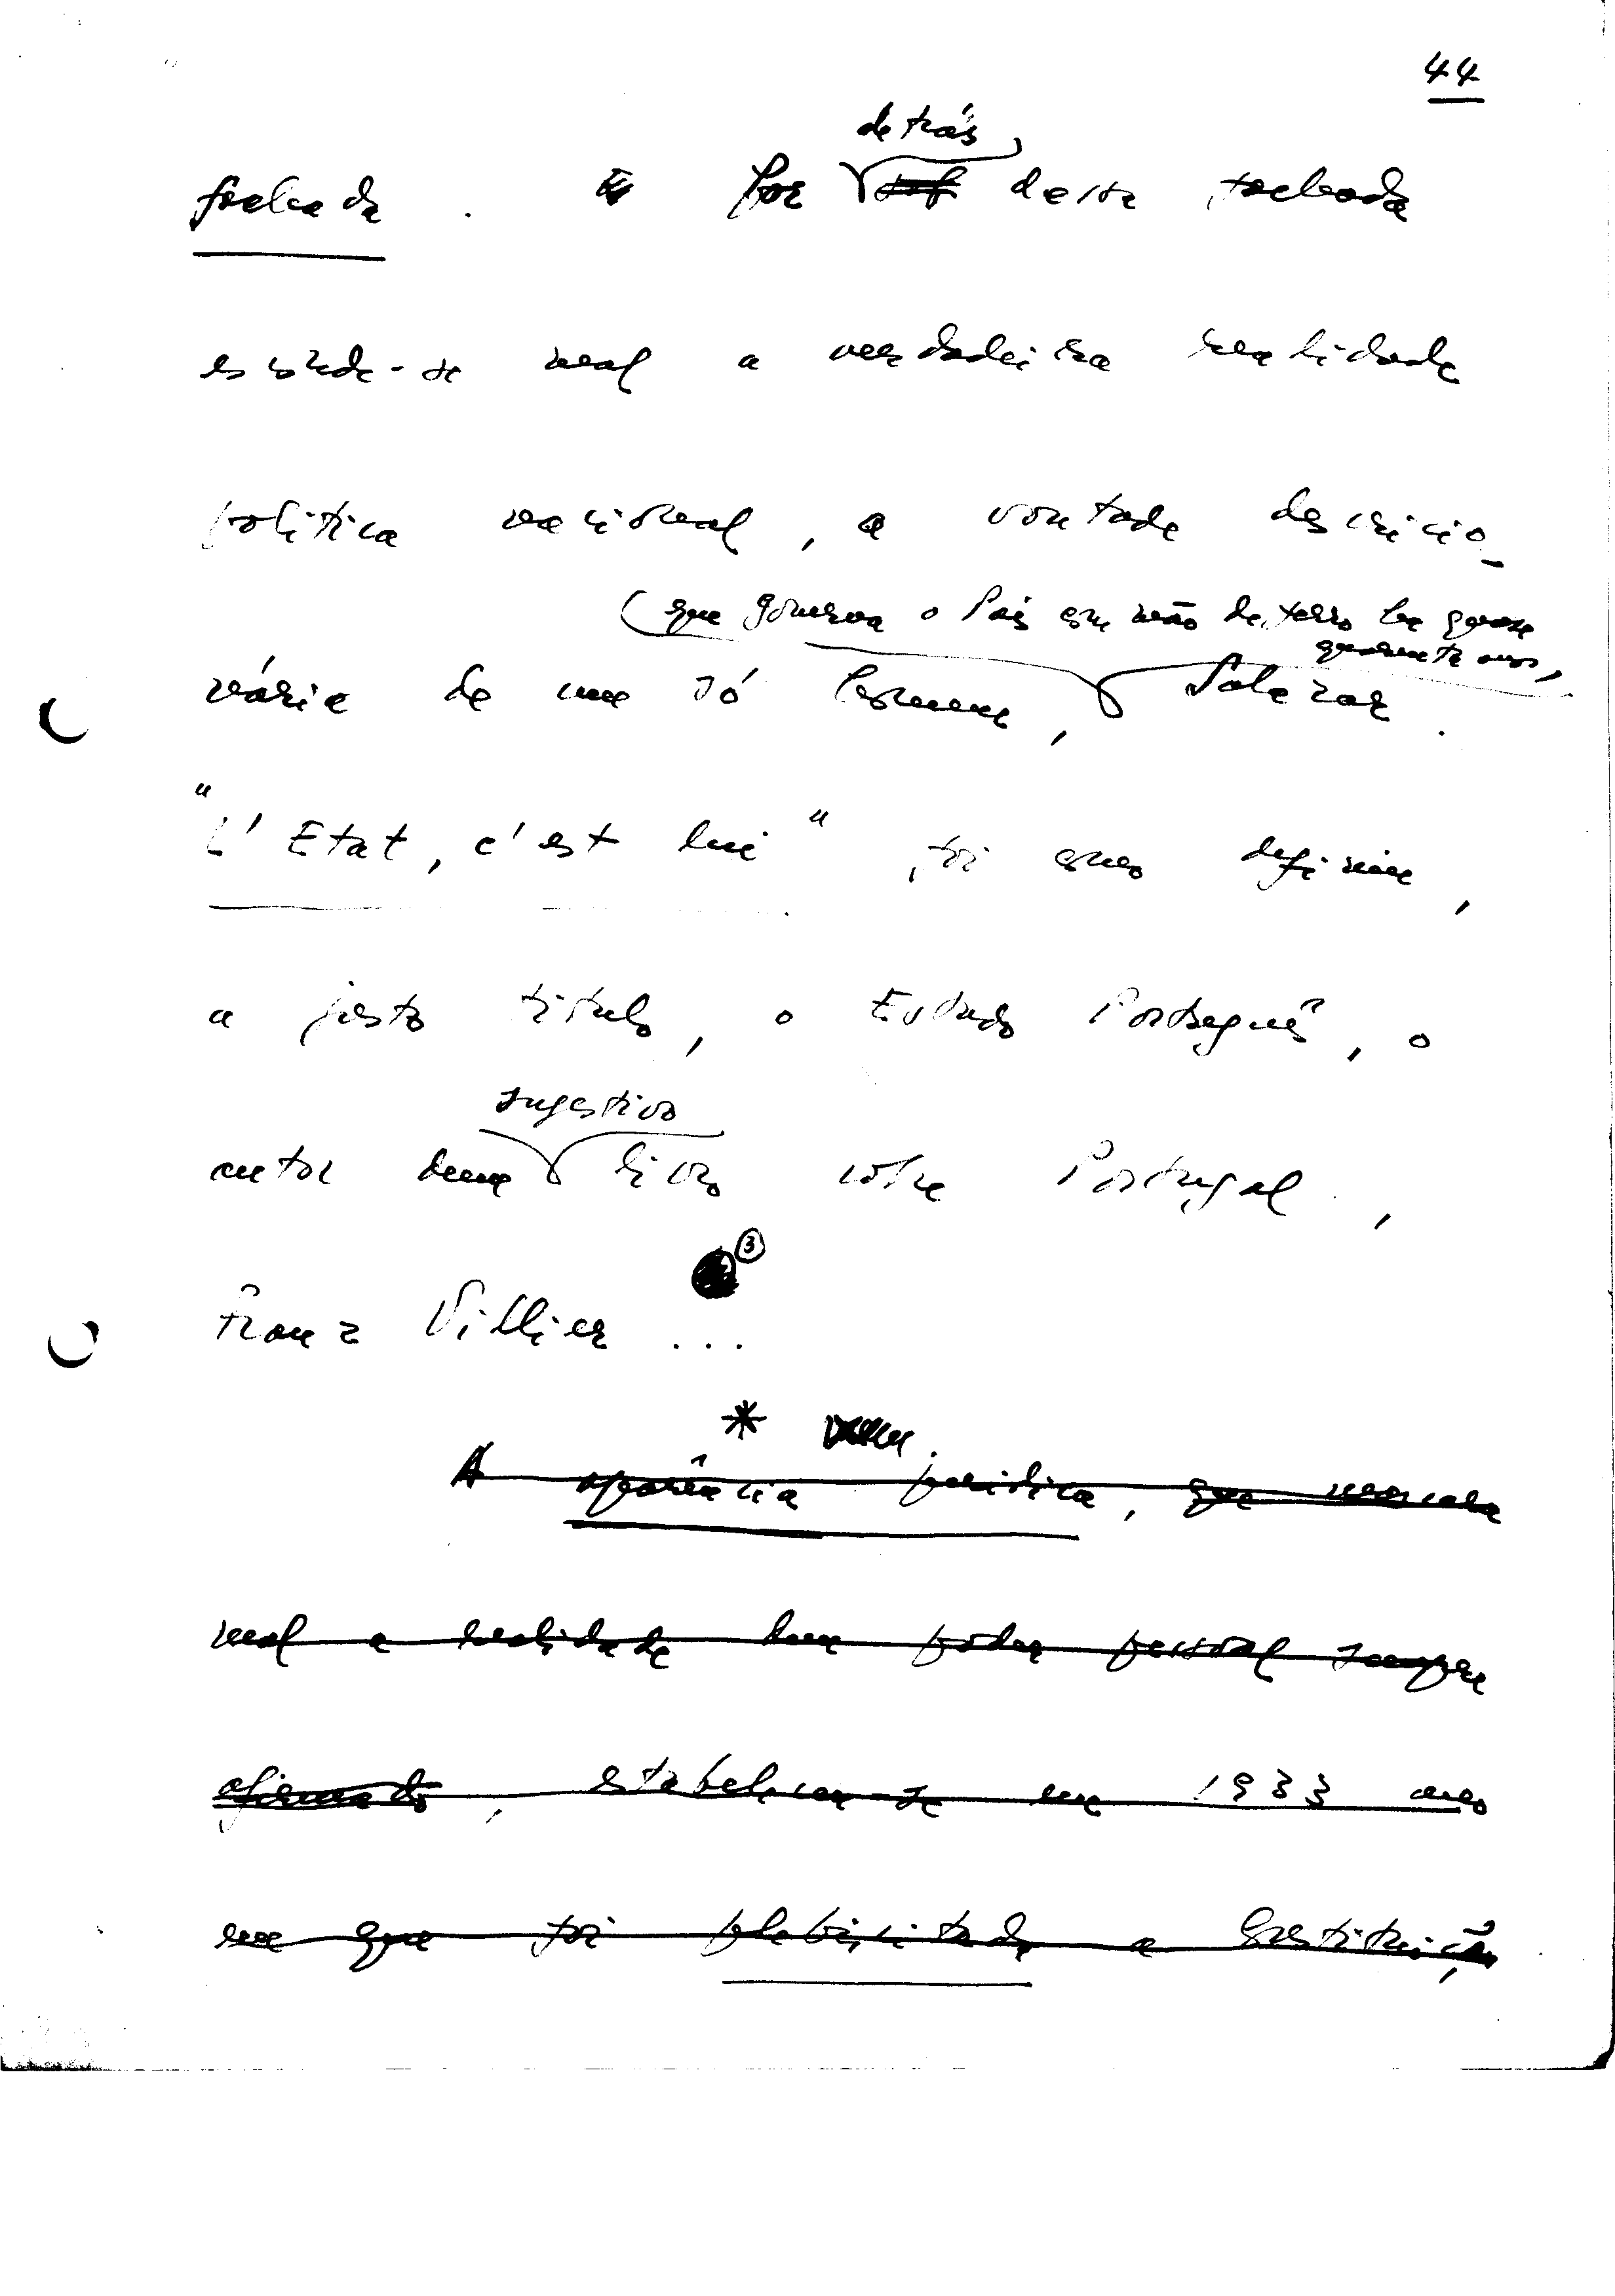 44
detrás
fachada. E por sob desta fachada
esconde-se mal a verdadeira realidade
política nacional, a vontade descricio-
que governa o País com mão de ferro há quase
quarenta anos,
nária de um só homem, Salazar.
"L'Etat, c'est lui", foi como definiu,
a justo título, o Estado Português, o
sugestivo
autor dum livro sobre Portugal,
3
Franz Villier...
*
A aparência jurídica, que mascara
mal a realidade dum poder pessoal sempre
afirmado, estabeleceu-se em 1933 ano
em que foi plebiscitada a Constituição,